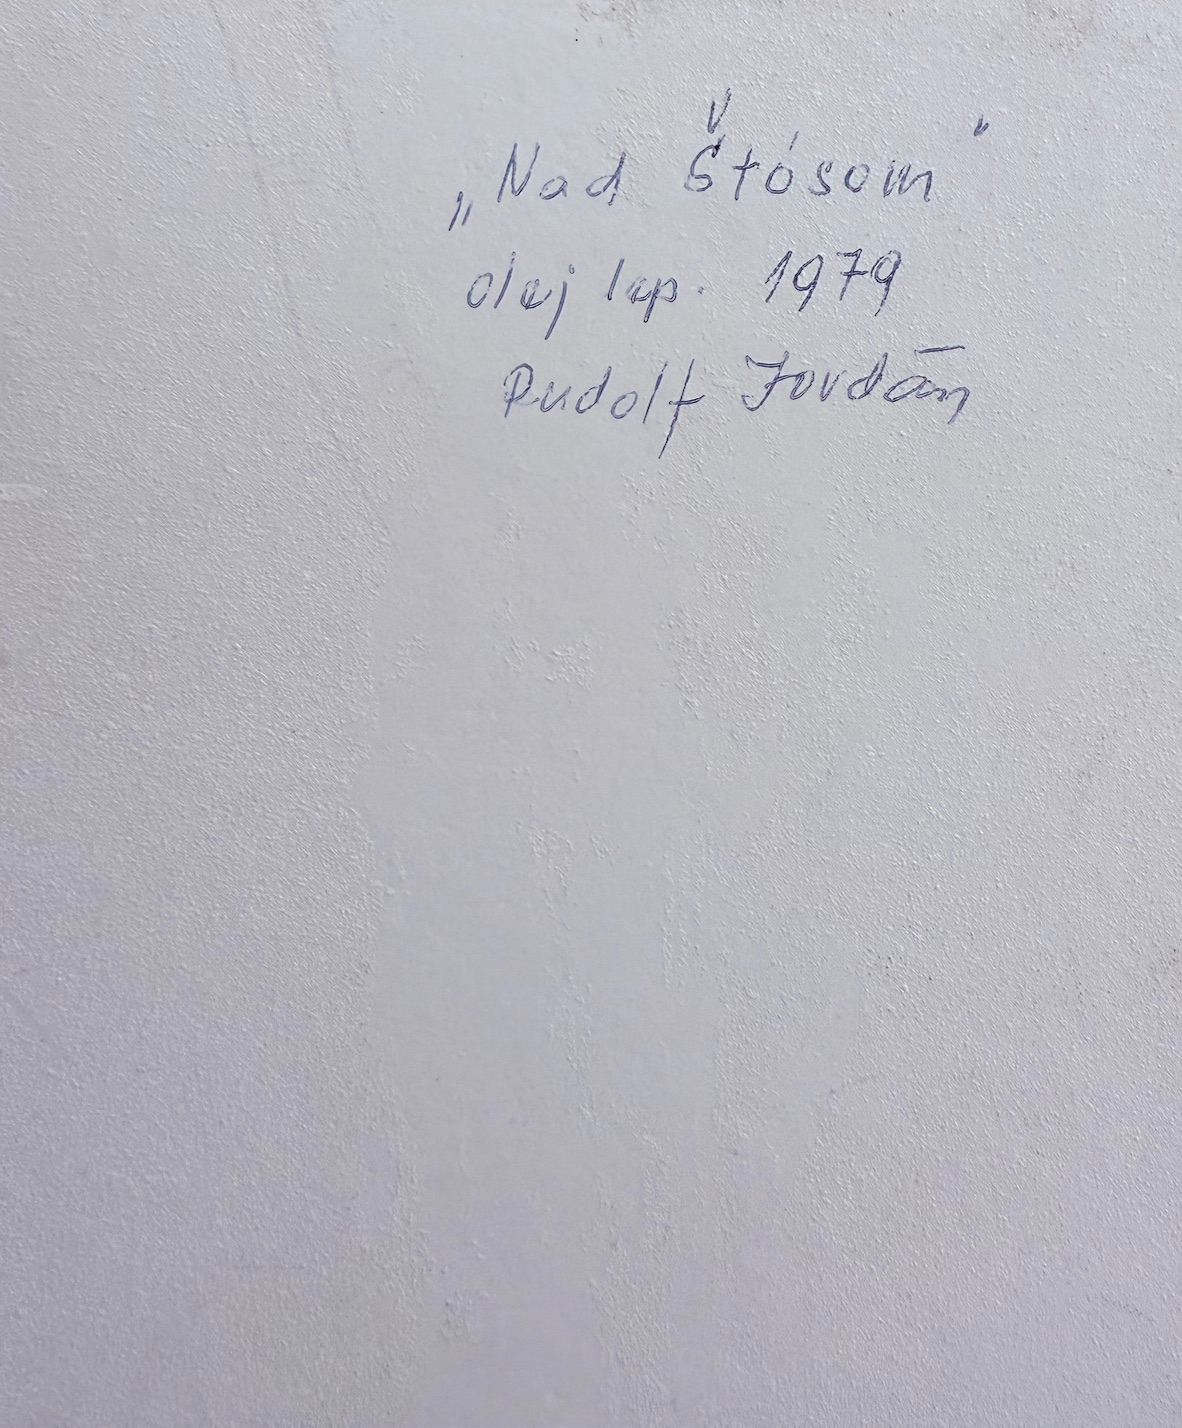 „Nad Štósom"
olej lep. 1979
Rudolf Jordán